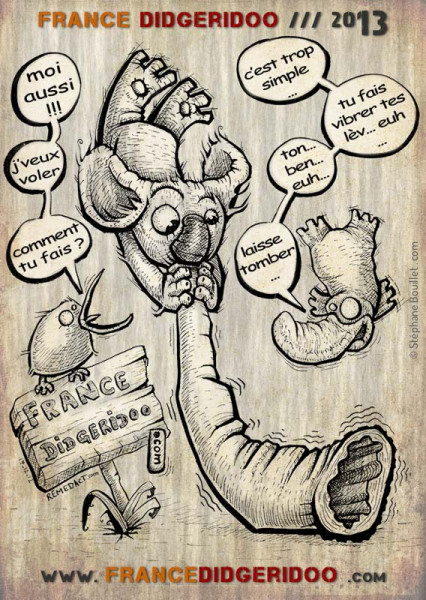 FRANCE DIDGERIDOO /// 2013
moi
aussi
!!!
j'veux
voler
comment
tu fais ?
c'est trop
simple
...
tu fais
vibrer tes
lèv... euh
...
ton...
ben...
euh...
laisse
tomber
...
© Stéphane Bouillet .com
FRANCE
DIDGERIDOO
.com
REMEDACT.com
www. FRANCEDIDGERIDOO .com